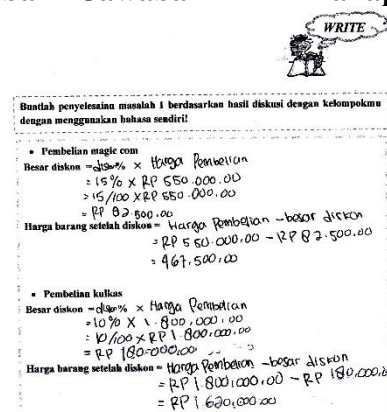 WRITE
Buatlah penyelesaian masalah 1 berdasarkan hasil diskusi dengan kelompokmu
dengan menggunakan bahasa sendiri!
• Pembelian magic com
Besar diskon = diskon% × Harga Pembelian
= 15% × RP 550.000.00
= 15/100 × RP 550.000,00
= RP 82.500,00
Harga barang setelah diskon = Harga Pembelian - besar diskon
= RP 550.000,00 - RP 82.500,00
= 467.500,00
▪ Pembelian kulkas
Besar diskon = diskon% × Harga Pembelian
= 10% × 1.800.000,00
= 10/100 × RP 1.800.000,00
= RP 180.000,00
Harga barang setelah diskon = Harga Pembelian - besar diskon
= RP 1.800.000,00 - RP 180.000,0
= RP 1.620,000,00